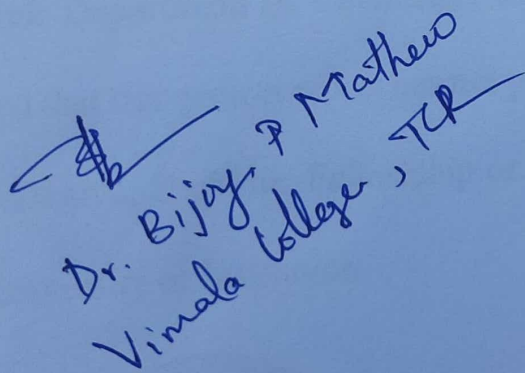 Dr. Bijoy. P Mathew
Vimala College, TCR